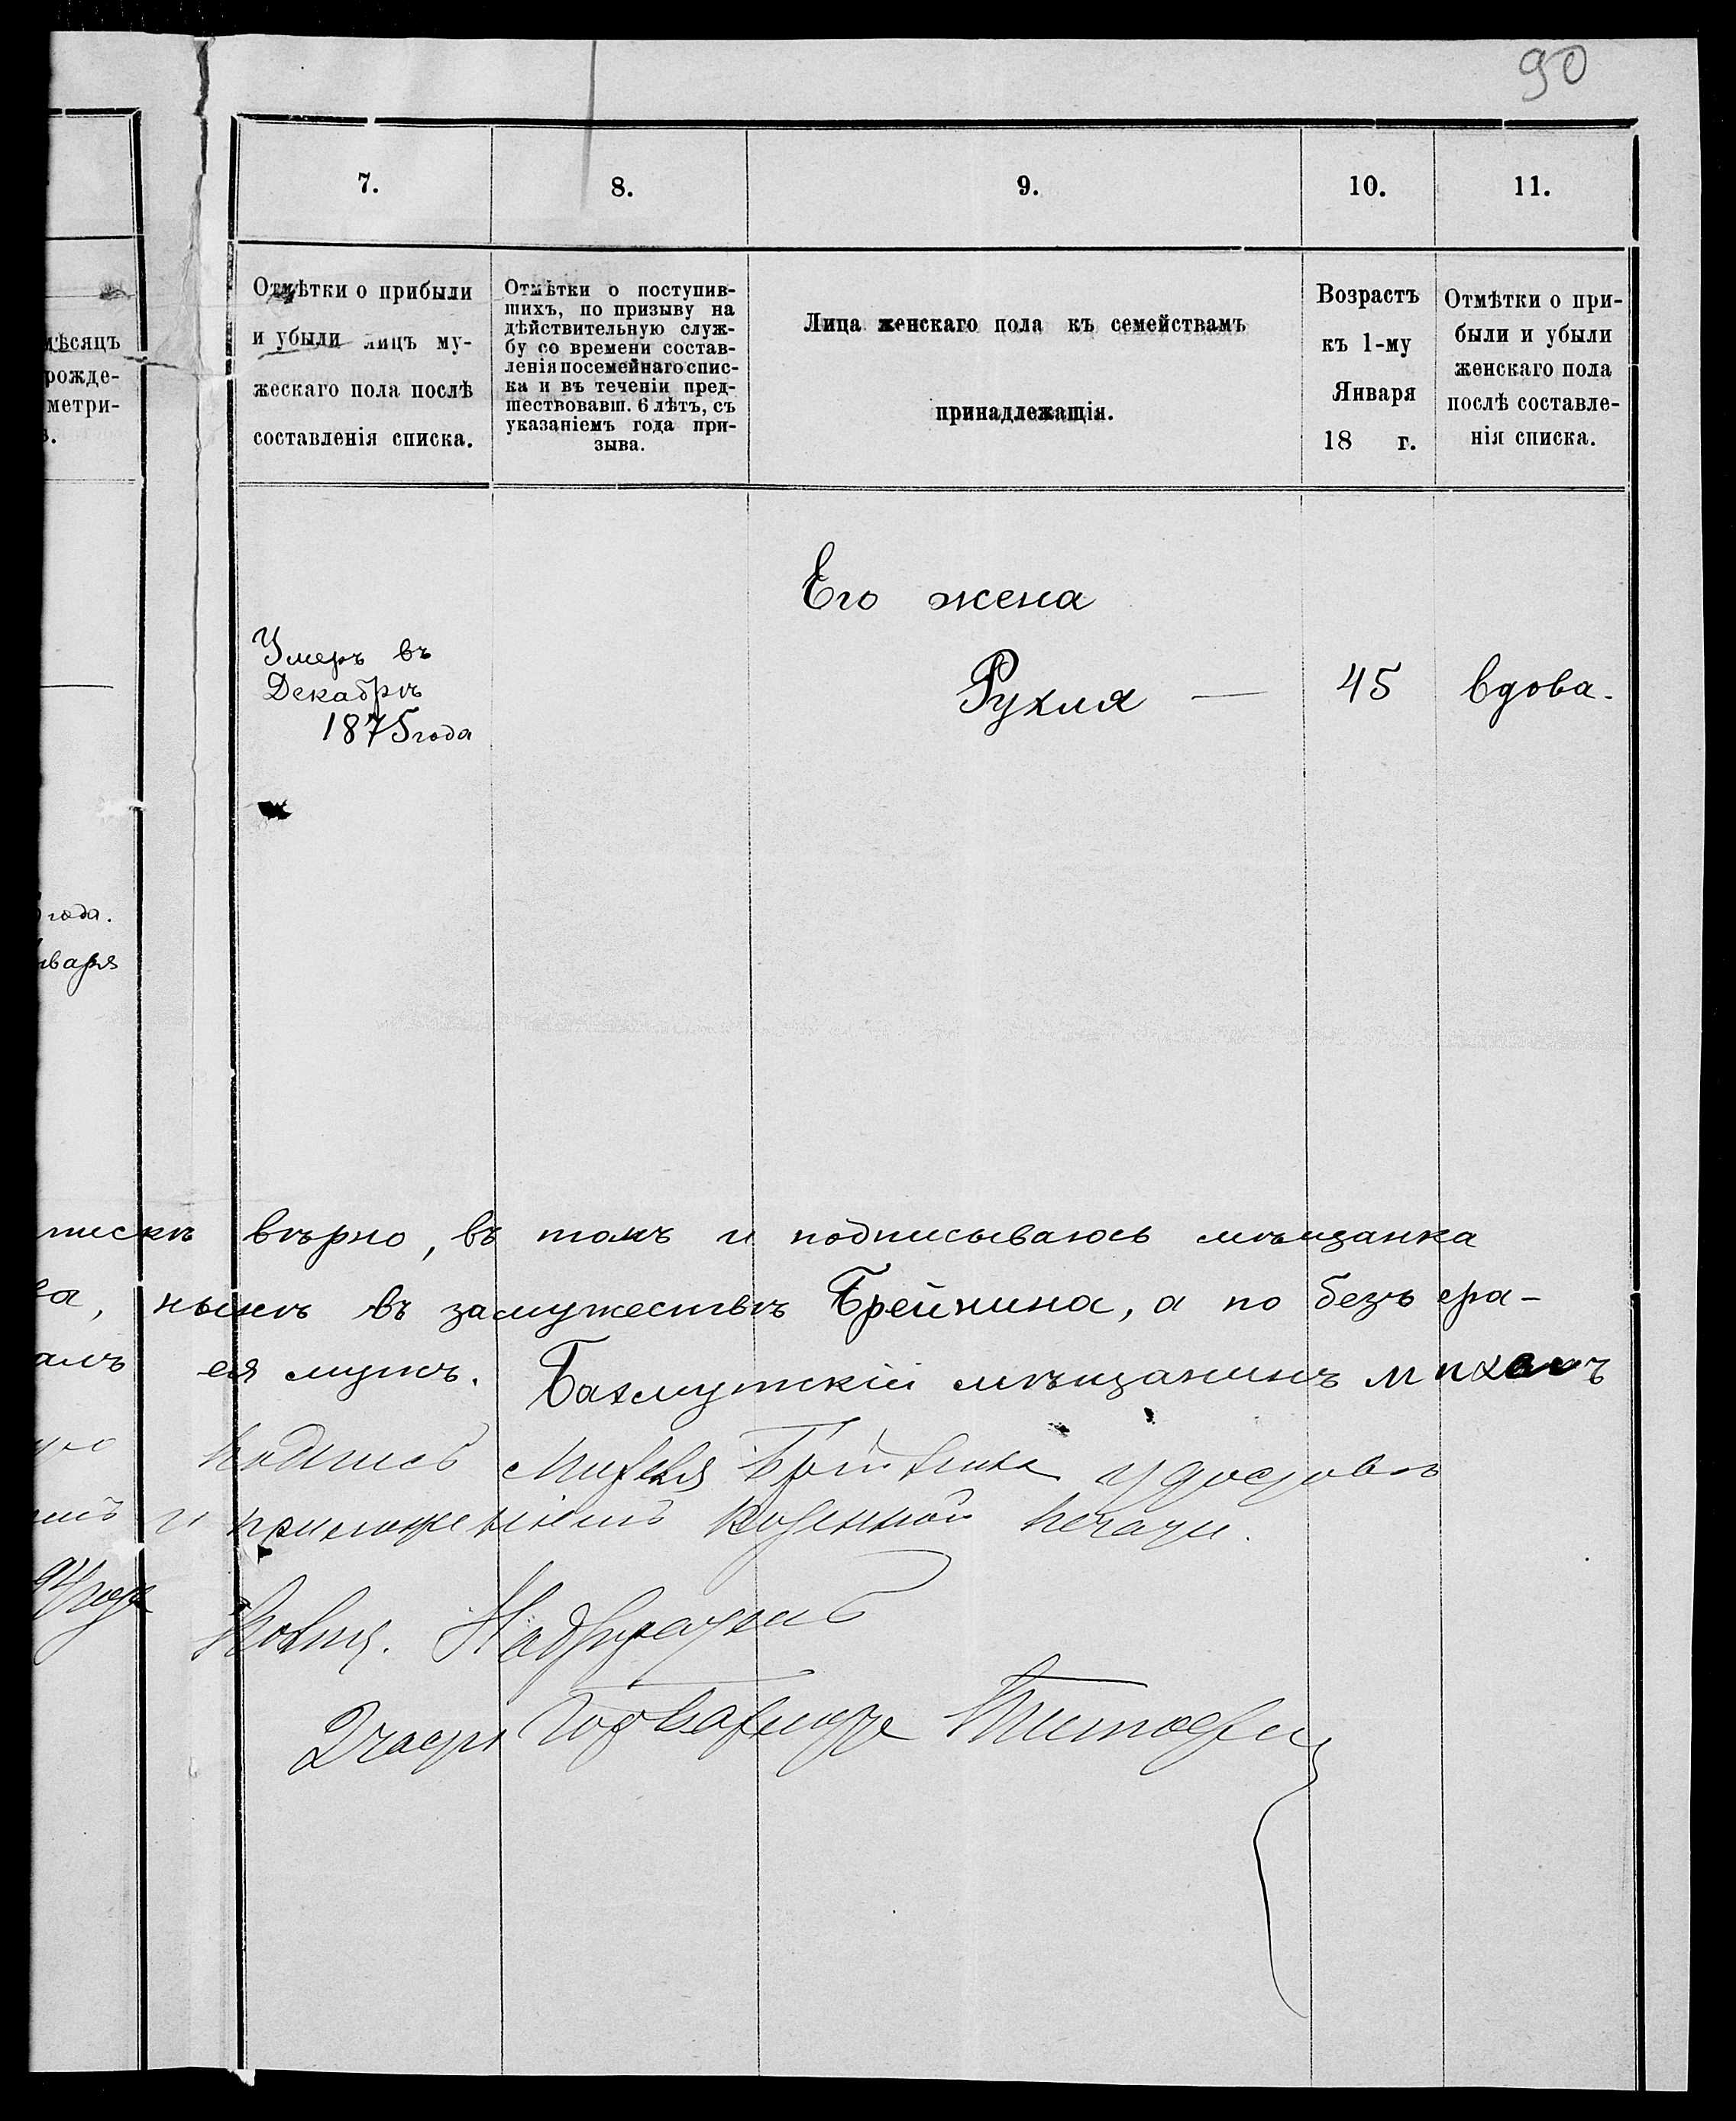 90
7.
8.
9.
10.
11.
мѣсяцъ
рожде-
метри-
в.
Отмѣтки о прибыли
и убыли лицъ му-
жескаго пола послѣ
составленія списка.
Отмѣтки о поступив-
шихъ, по призыву на
дѣйствительную служ-
бу со времени состав-
ленія посемейнаго спис-
ка и въ теченіи пред-
шествовавш. 6 лѣтъ, съ
указаніемъ года при-
зыва.
Лица женскаго пола къ семействамъ
принадлежащія.
Возрастъ
къ 1-му
Января
18 г.
Отмѣтки о при-
были и убыли
женскаго пола
послѣ составле-
нія списка.
Его жена
Умеръ въ
Декабрѣ
1875 года
Рухля — 45 вдова.
года.
нваря
пискѣ вѣрно, въ томъ и подписываюсь мѣщанка
ва, нынѣ въ замужествѣ Брейнина, а по безъ гра-
алъ ея мужъ. Бахмутскій мѣщанинъ Михель
подпись Михеля удостовѣ
и приложеніемъ казенной печати.
Надзиратель